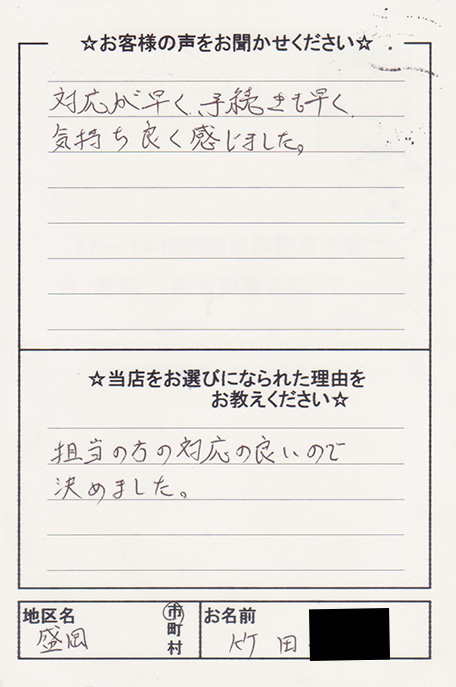 ☆お客様の声をお聞かせください☆
対応が早く、手続きも早く
気持ち良く感じました。
☆当店をお選びになられた理由を
お教えください☆
担当の方の対応の良いので
決めました。
地区名
盛岡
市
町
村
お名前
竹田